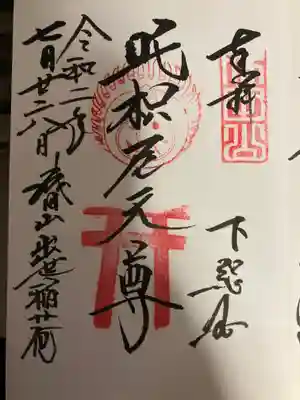 奉拝
下総国
吒枳尼天尊
令和二年
七月廿六日 山出世稲荷